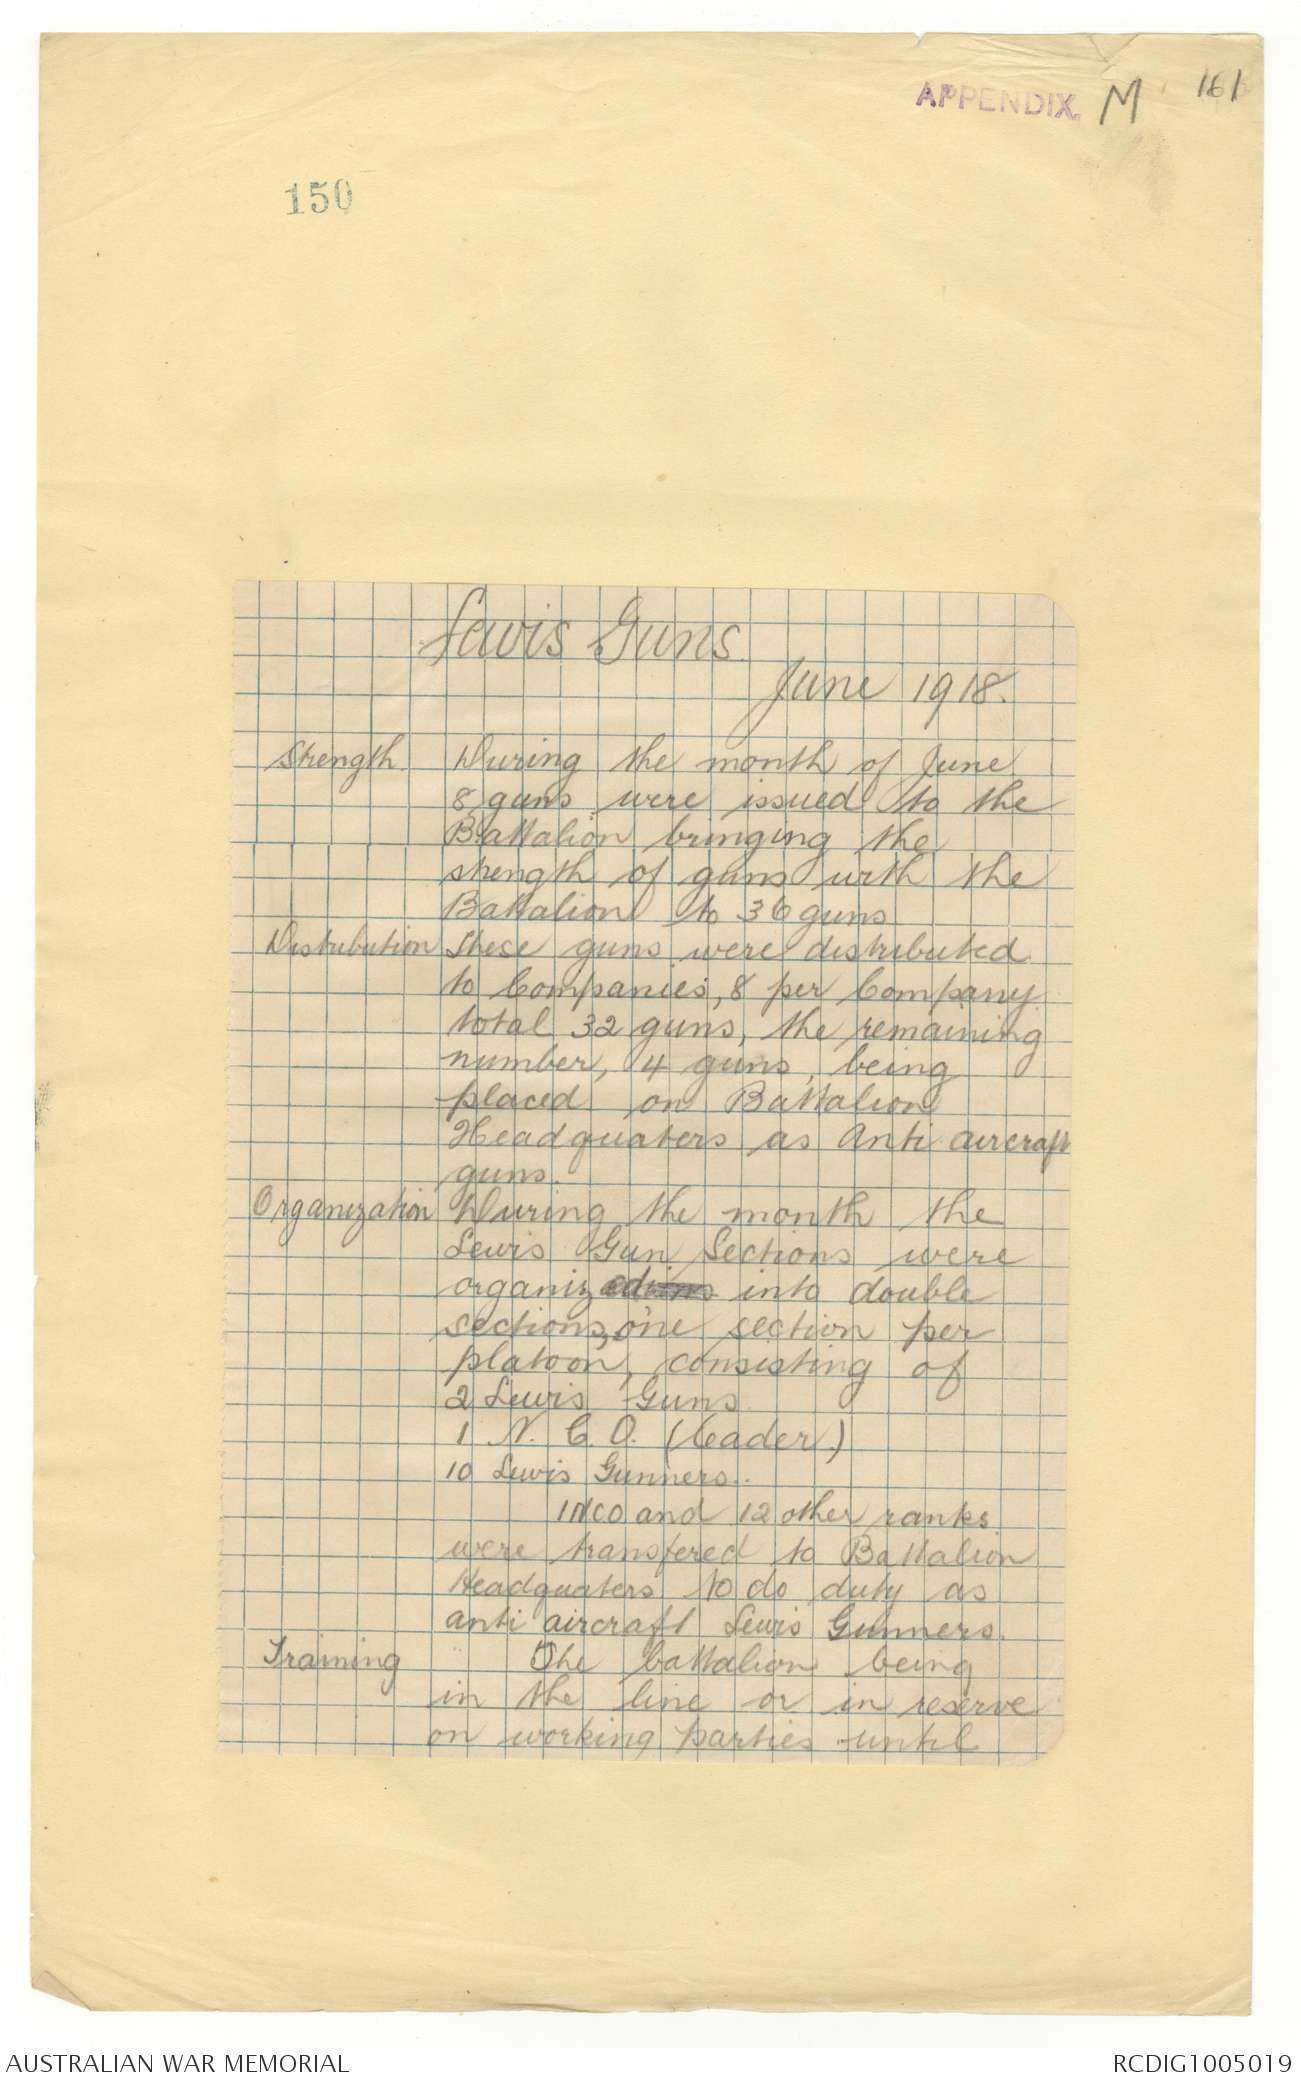 APPENDIX. M 161
150
Lewis Guns.
June 1918.
Strength. During the month of June
8 guns were issued to the
Battalion bringing the
strength of guns with the
Battalion to 36 guns
Distribution These guns were distributed
to Companies, 8 per Company
total 32 guns, the remaining
number, 4 guns, being
placed on Battalion
Headquaters as Anti aircraft
guns.
Organization During the month the
Lewis Gun Sections were
organized into double
sections, one section per
platoon, consisting of
2 Lewis Guns
1 N.C.O. (leader)
10 Lewis Gunners.
1 NCO and 12 other ranks
were transfered to Battalion
Headquaters to do duty as
anti aircraft Lewis Gunners.
Training The battalion being
in the line or in reserve
on working parties until
AUSTRALIAN WAR MEMORIAL RCDIG1005019